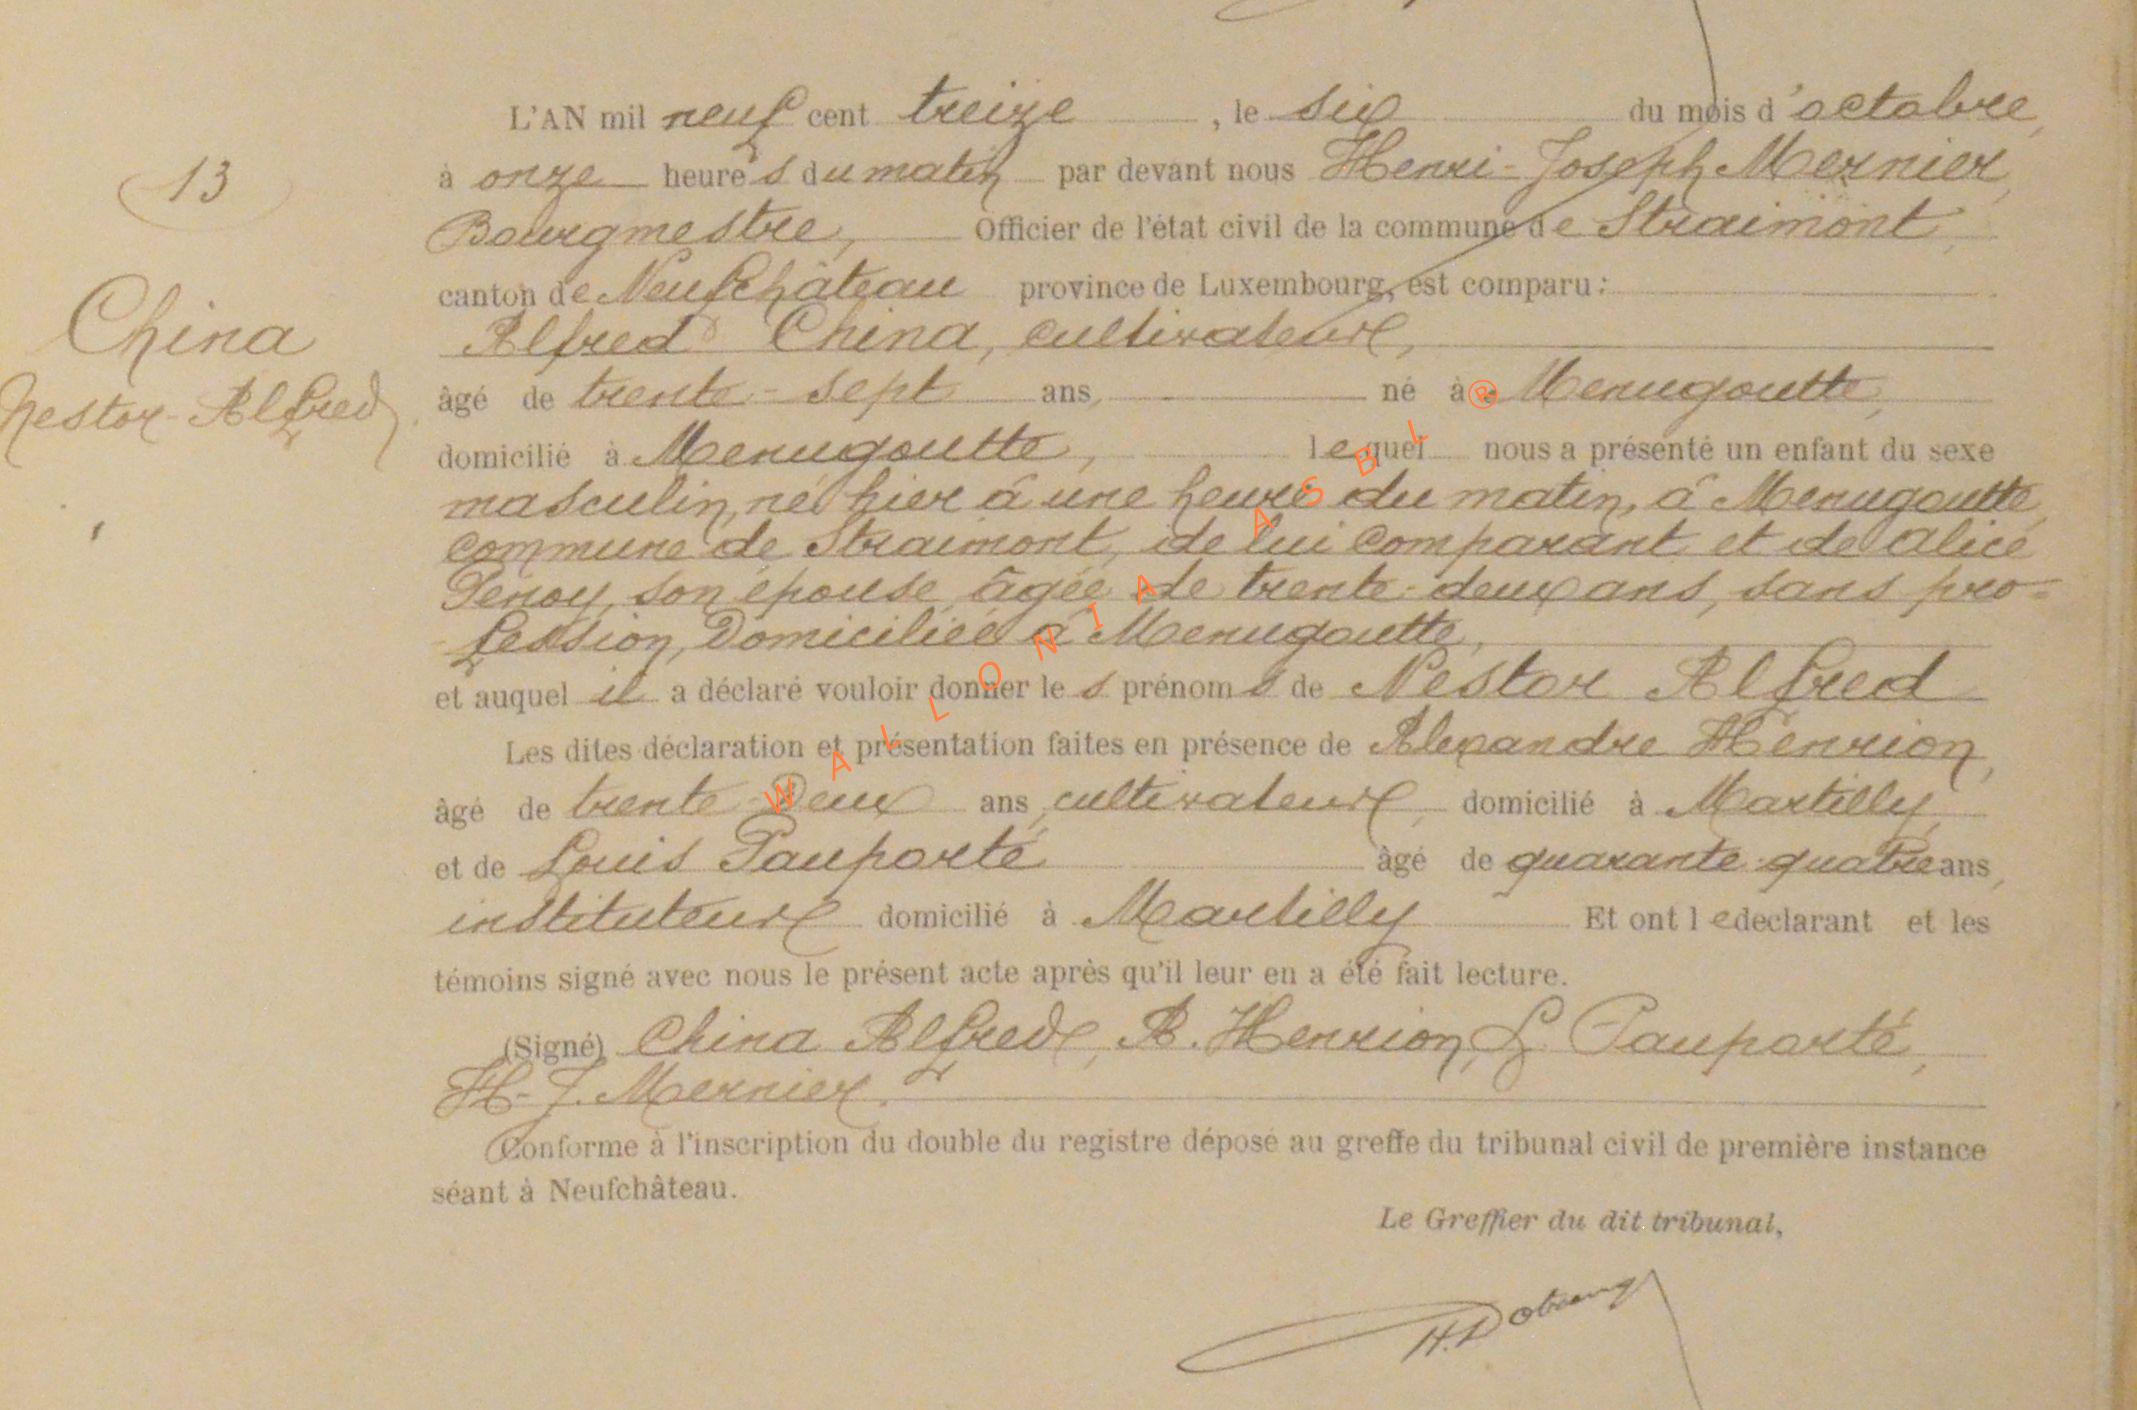 L'AN mil neuf cent treize , le six du mois d'octobre,
13
à onze heures du matin par devant nous Henri-Joseph Mernier,
Bourgmestre, Officier de l'état civil de la commune de Straimont,
canton de Neufchâteau province de Luxembourg, est comparu :
China
Nestor-Alfred
Alfred China, cultivateur,
âgé de trente-sept ans, né à Menugoutte,
domicilié à Menugoutte, lequel nous a présenté un enfant du sexe
masculin, né hier à une heure du matin, à Menugoutte,
commune de Straimont, de lui comparant et de Alice
son épouse, âgée de trente-deux ans, sans pro=
fession, Domiciliée à Menugoutte,
et auquel il a déclaré vouloir donner les prénoms de Nestor Alfred
Les dites déclaration et présentation faites en présence de Alexandre Henrion,
âgé de trente-Deux ans, cultivateur, domicilié à Martilly,
et de Louis Pauporté âgé de quarante-quatre ans,
instituteur domicilié à Martilly Et ont le declarant et les
témoins signé avec nous le présent acte après qu'il leur en a été fait lecture.
(Signé) China Alfred, A. Henrion, L. Pauporté,
H-J. Mernier.
Conforme à l'inscription du double du registre déposé au greffe du tribunal civil de première instance
séant à Neufchâteau.
Le Greffier du dit tribunal,
WALLONIA ASBL ®